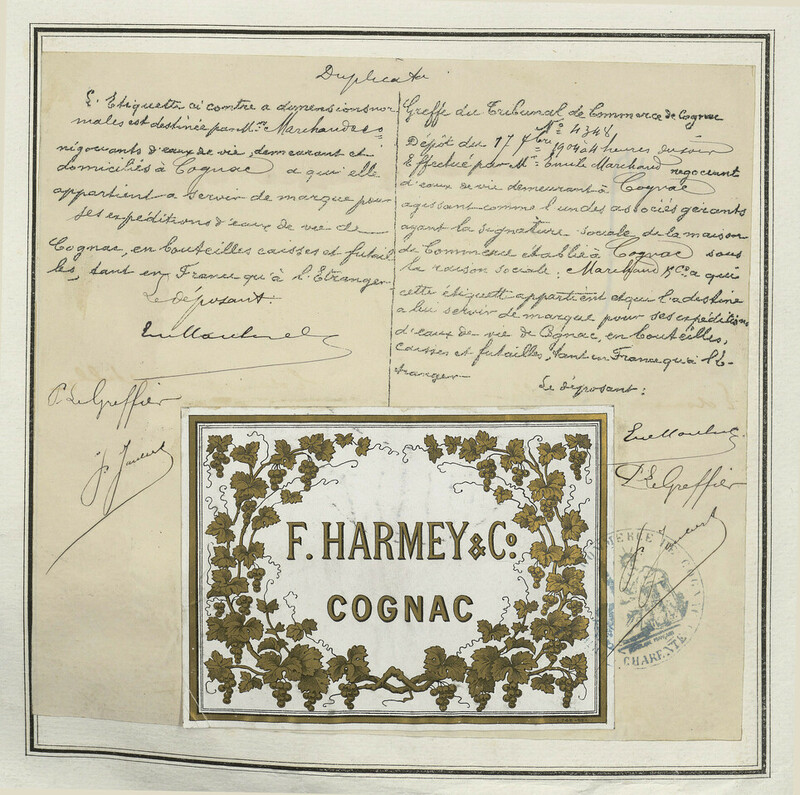 Duplicata
L'Etiquette ci contre a dimensions nor
males est destinée par Mrs Marchaud & Co
négociants d'eaux de vie, demeurant et
domiciliés à Cognac à qui elle
appartient a servir de marque pour
ses expéditions d'eaux de vie de
Cognac, en bouteilles caisses et futail
les, tant en France qu'à l'Etranger
Le déposant:
P. Le Greffier
Greffe du Tribunal de Commerce de Cognac
No 4348
Dépôt du 17 1904 à 4 heures du soir
Effectué par Mr Emile Marchaud négociant
d'eaux de vie demeurant à Cognac
agissant comme l'un des associés gérants
ayant la signature sociale de la maison
de Commerce établie à Cognac sous
la raison sociale: Marchaud & Co a qui
cette étiquette appartient et qui l'a destine
a lui servir de marque pour ses expéditions
d'eaux de vie de Cognac, en bouteilles,
caisses et futailles, tant en France qu'à l'E-
tranger
Le déposant:
P. Le Greffier
F. HARMEY & Co.
COGNAC
COMMERCE DE COGNAC
CHARENTE